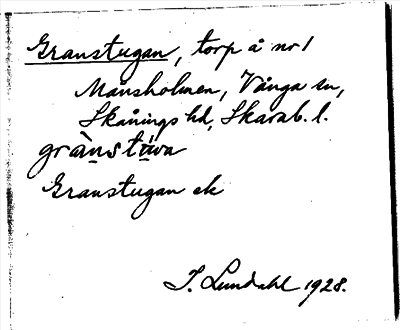 Granstugan, torp å nr 1
Månsholmen, Vånga sn,
Skånings hd, Skarab. l.
Granstugan ek
I. Lundahl 1928.